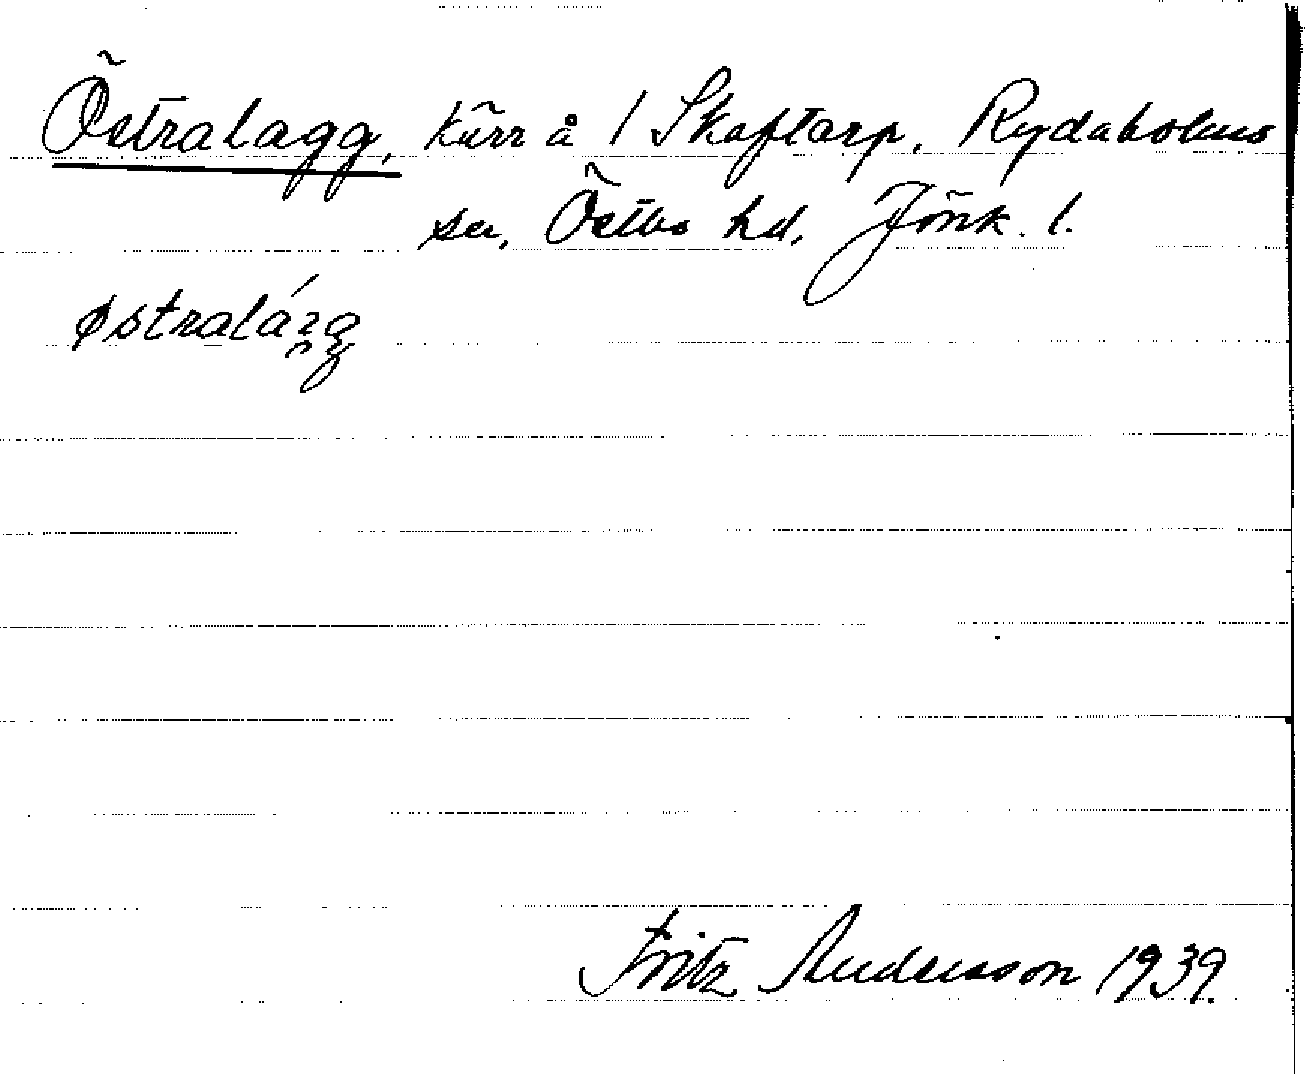 Östralagg, kärr å 1 Skaftarp, Rydaholms
sn, Östbo hd, Jönk. l.
østralág
Fritz Andersson 1939.